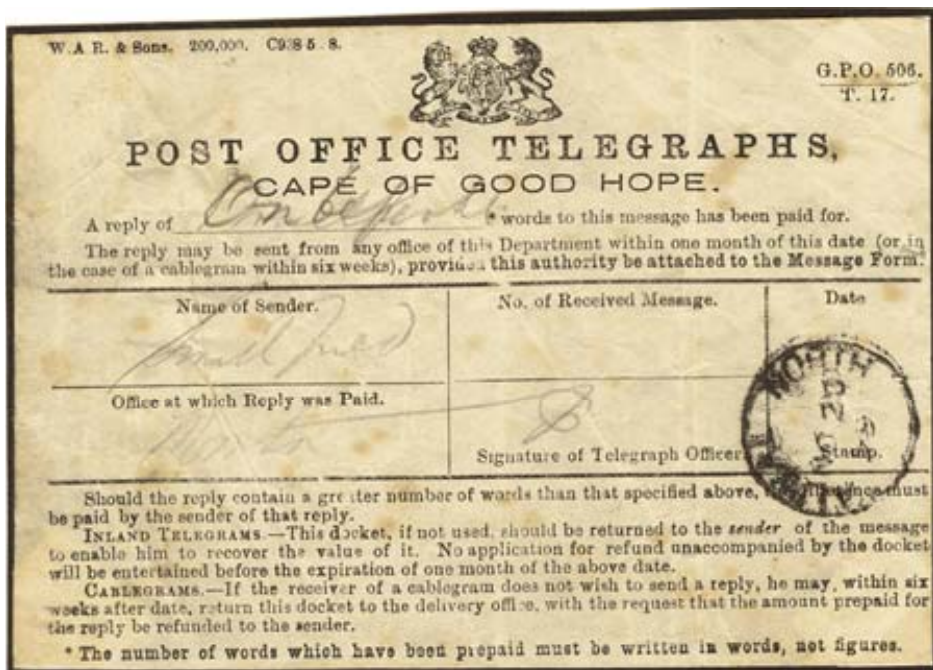 W.A R. & Sons. 200,000. C9385.8.
G.P.O. 506.
T. 17.
POST OFFICE TELEGRAPHS,
CAPE OF GOOD HOPE.
A reply of * words to this message has been paid for.
The reply may be sent from any office of this Department within one month of this date (or in
the case of a cablegram within six weeks), provided this authority be attached to the Message Form.
Name of Sender.
No. of Received Message.
Date
Office at which Reply was Paid.
NORTH
Signature of Telegraph Officer.
Stamp.
Should the reply contain a greater number of words than that specified above, must
be paid by the sender of that reply.
INLAND TELEGRAMS.—This docket, if not used, should be returned to the sender of the message
to enable him to recover the value of it. No application for refund unaccompanied by the docket
will be entertained before the expiration of one month of the above date.
CABLEGRAMS.—If the receiver of a cablegram does not wish to send a reply, he may, within six
weeks after date, return this docket to the delivery office, with the request that the amount prepaid for
the reply be refunded to the sender.
* The number of words which have been prepaid must be written in words, not figures.